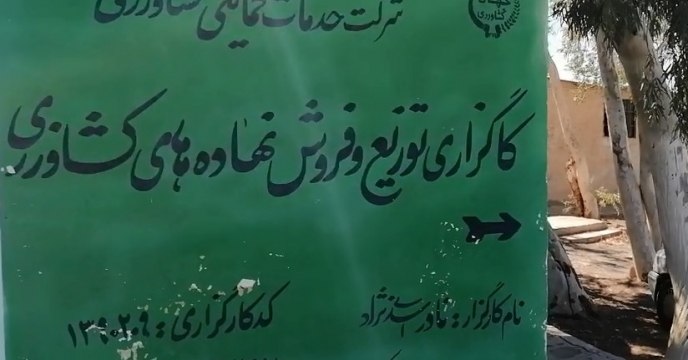 شرکت خدمات حمایتی کشاورزی
کارگزاری توزیع و فروش نهاده های کشاورزی
نام کارگزار: نادر اسدنژاد
کد کارگزاری: ۱۳۹۰۲۰۹